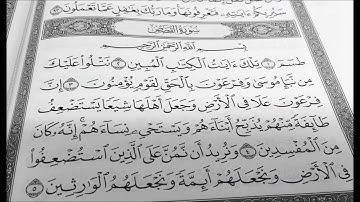 سَيُرِيكُمْ ءَايَٰتِهِۦ فَتَعْرِفُونَهَا وَمَا رَبُّكَ بِغَٰفِلٍ عَمَّا تَعْمَلُونَ ۝٩٣
سُورَةُ الْقَصَصِ
بِسْمِ اللَّهِ الرَّحْمَٰنِ الرَّحِيمِ
طسٓمٓ ۝١ تِلْكَ ءَايَٰتُ الْكِتَٰبِ الْمُبِينِ ۝٢ نَتْلُوا۟ عَلَيْكَ
مِن نَّبَإِ مُوسَىٰ وَفِرْعَوْنَ بِالْحَقِّ لِقَوْمٍ يُؤْمِنُونَ ۝٣ إِنَّ
فِرْعَوْنَ عَلَا فِى الْأَرْضِ وَجَعَلَ أَهْلَهَا شِيَعًا يَسْتَضْعِفُ
طَآئِفَةً مِّنْهُمْ يُذَبِّحُ أَبْنَآءَهُمْ وَيَسْتَحْىِۦ نِسَآءَهُمْ ۚ إِنَّهُۥ كَانَ
مِنَ الْمُفْسِدِينَ ۝٤ وَنُرِيدُ أَن نَّمُنَّ عَلَى الَّذِينَ اسْتُضْعِفُوا۟
فِى الْأَرْضِ وَنَجْعَلَهُمْ أَئِمَّةً وَنَجْعَلَهُمُ الْوَٰرِثِينَ ۝٥